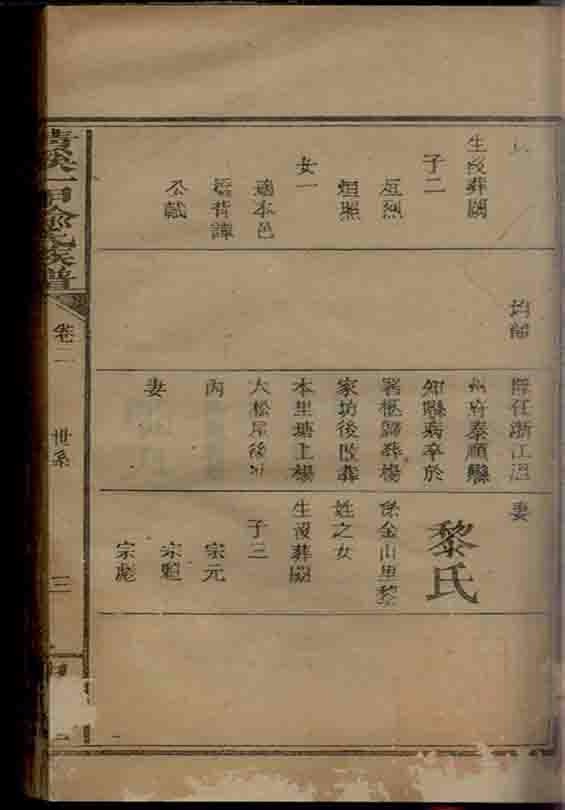 生歿葬闕
子二
烜烈
烜照
女一
適本邑
公戲
陞任浙江温
州府泰順縣
知縣病卒於
署柩歸葬楊
家坊後改葬
本里塘上楊
大松屋後
丙
妻
妻
黎氏
係金山里黎
姓之女
生歿葬闕
子三
宗元
宗彪
氏族譜
卷二
世系
三